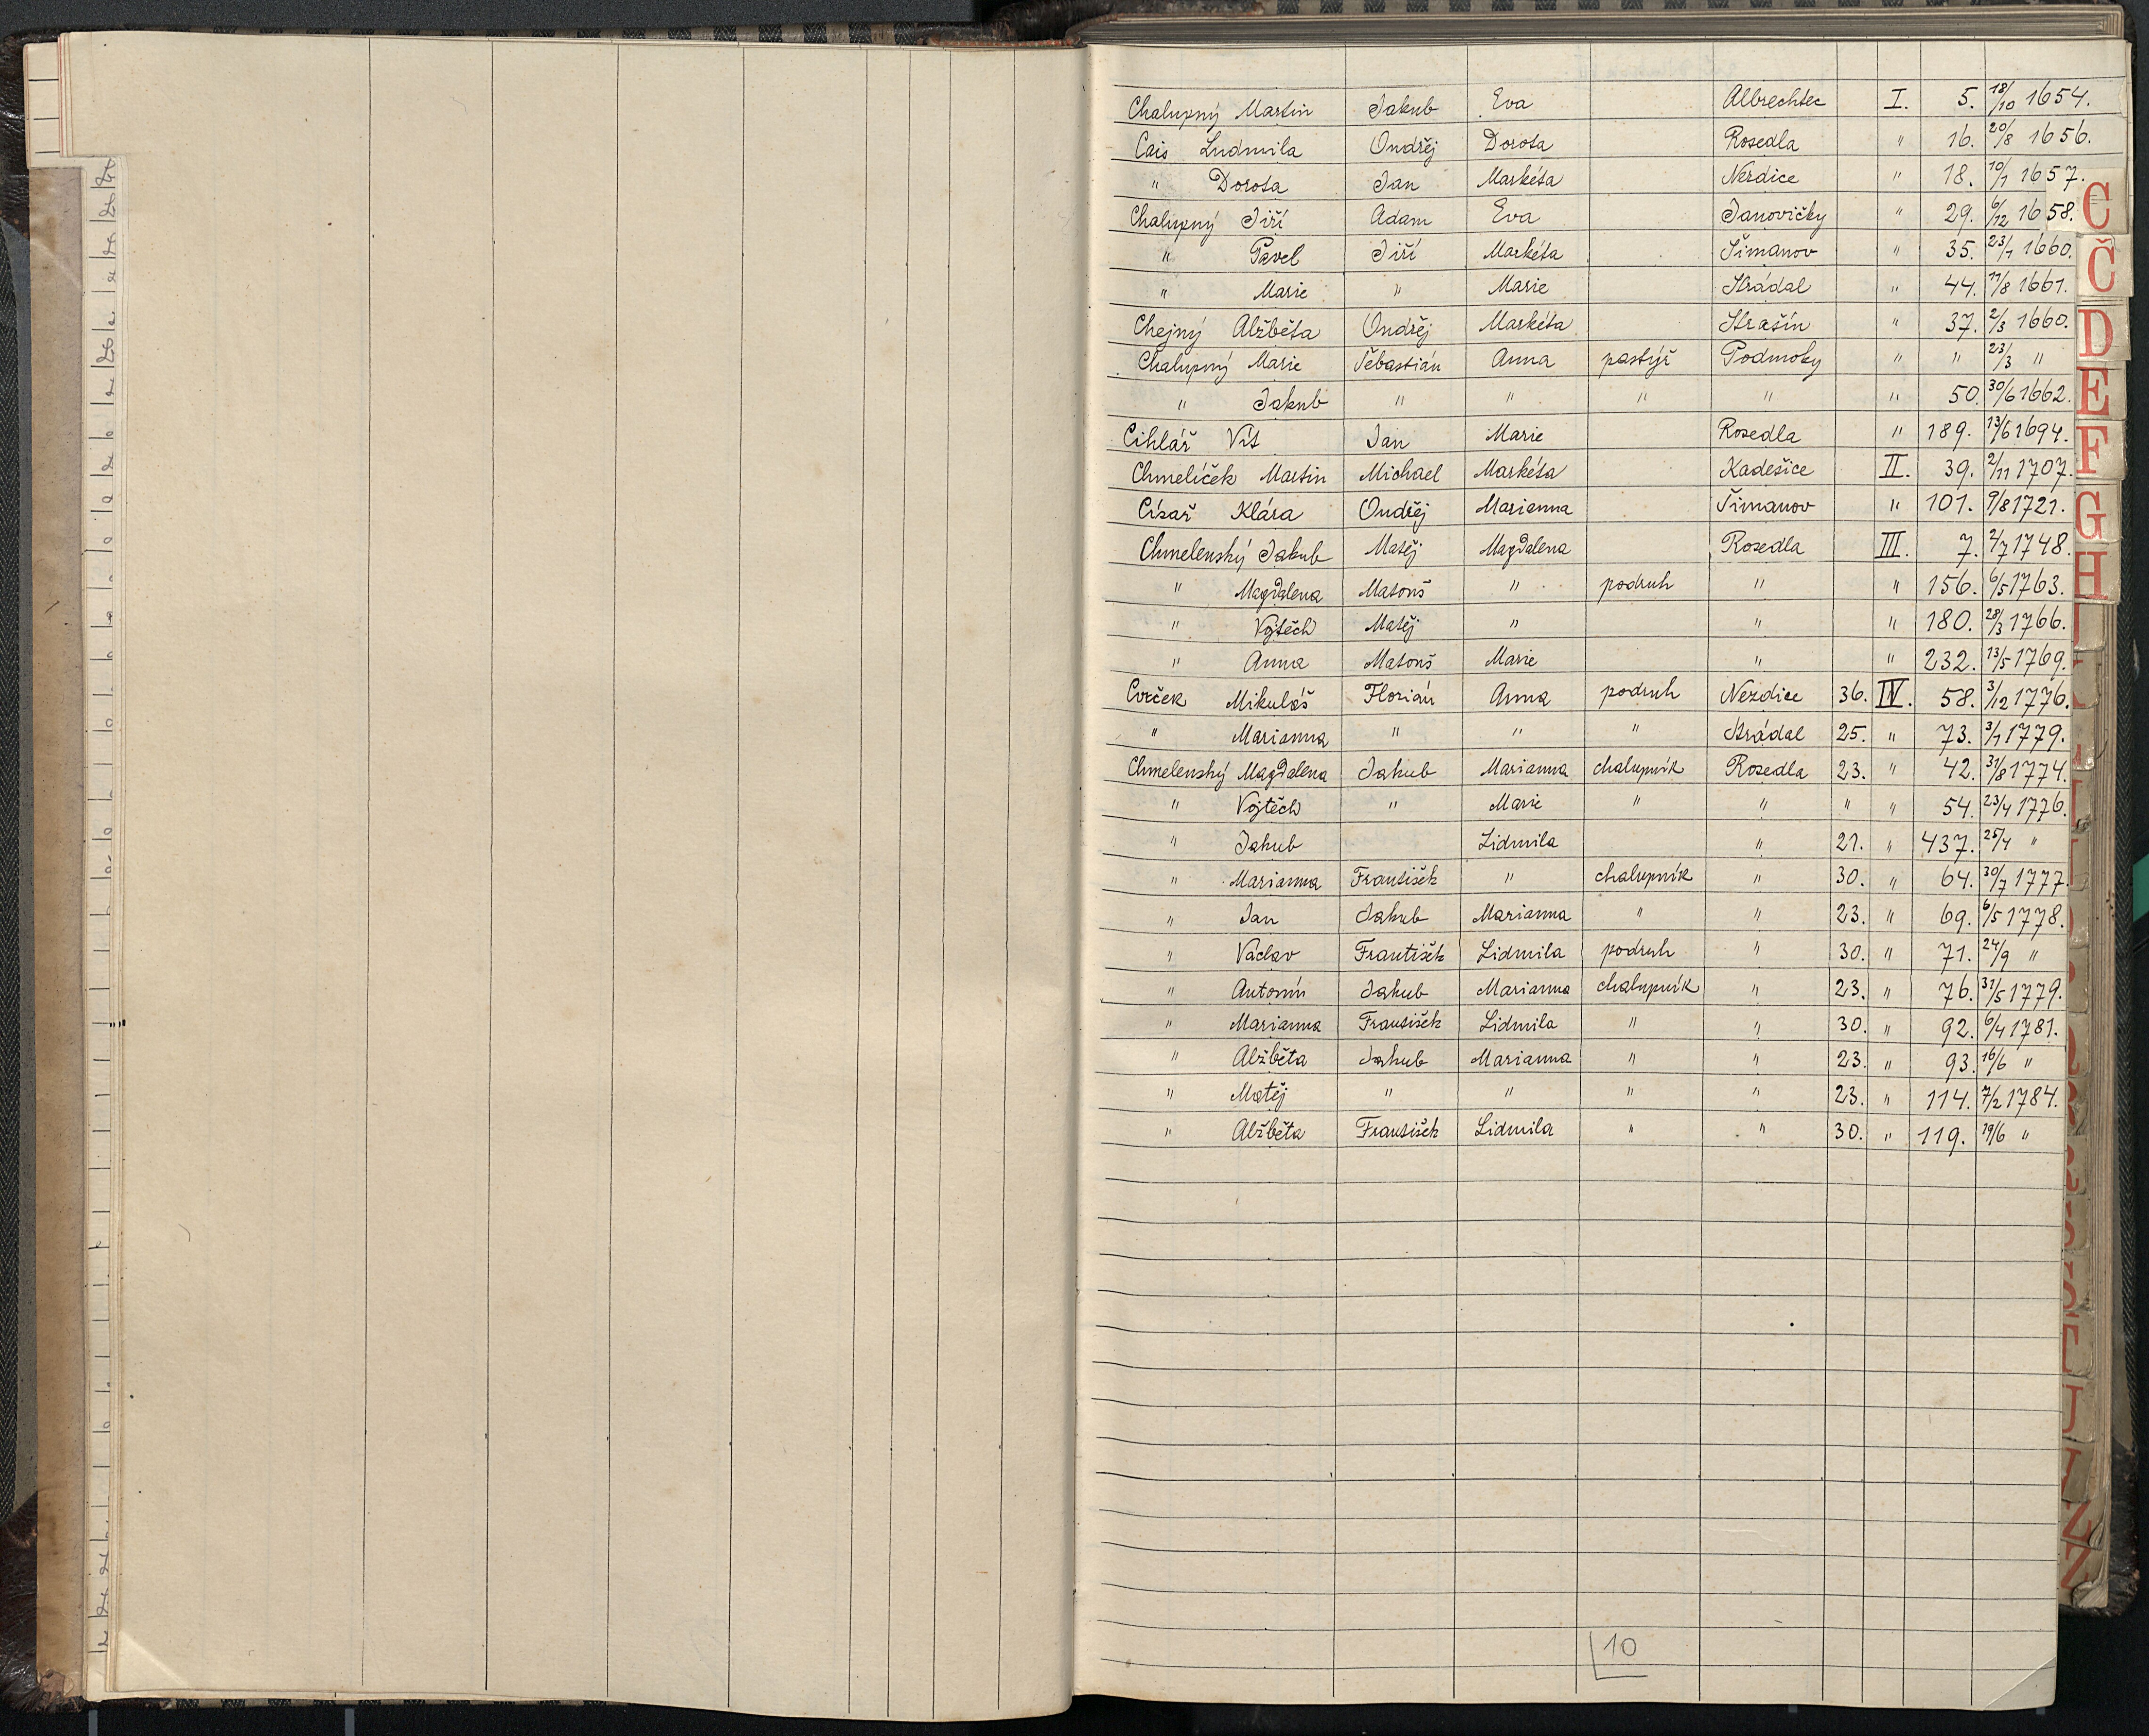 Chalupný Martin Jakub Eva Albrechtec I. 5. 18/10 1654.
Cais Ludmila Ondřej Dorota Rozedla " 16. 20/8 1656.
" Dorota Jan Markéta Nezdice " 18. 10/1 1657.
Chalupný Jiří Adam Eva Janovičky " 29. 6/12 1658.
" Pavel Jiří Markéta Šimanov " 35. 23/1 1660.
" Marie " Marie Hrádal " 44. 17/8 1661.
Chejný Alžběta Ondřej Markéta Strašín " 37. 2/3 1660.
Chalupný Marie Šebastián Anna pastýř Podmoky " " 23/3 "
" Jakub " " " " " 50. 30/6 1662.
Cihlář Vít Jan Marie Rozedla " 189. 13/6 1694.
Chmelíček Martin Michael Markéta Kadešice II. 39. 2/11 1707.
Císař Klára Ondřej Marianna Šimanov " 101. 9/8 1721.
Chmelenský Jakub Matěj Magdalena Rozedla III. 7. 2/7 1748.
" Magdalena Matouš " podruh " " 156. 6/5 1763.
" Vojtěch Matěj " " " 180. 28/3 1766.
" Anna Matouš Marie " " 232. 13/5 1769.
Cvrček Mikuláš Florián Anna podruh Nezdice 36. IV. 58. 3/12 1776.
" Marianna " " " Hrádal 25. " 73. 3/1 1779.
Chmelenský Magdalena Jakub Marianna chalupník Rozedla 23. " 42. 31/8 1774.
" Vojtěch " Marie " " " " 54. 23/4 1776.
" Jakub Lidmila " 21. " 437. 25/4 "
" Marianna František " chalupník " 30. " 64. 30/7 1777.
" Jan Jakub Marianna " " 23. " 69. 6/5 1778.
" Václav František Lidmila podruh " 30. " 71. 24/9 "
" Antonín Jakub Marianna chalupník " 23. " 76. 31/5 1779.
" Marianna František Lidmila " " 30. " 92. 6/4 1781.
" Alžběta Jakub Marianna " " 23. " 93. 16/6 "
" Matěj " " " " 23. " 114. 7/2 1784.
" Alžběta František Lidmila " " 30. " 119. 19/6 "
10
C
Č
D
E
F
G
H